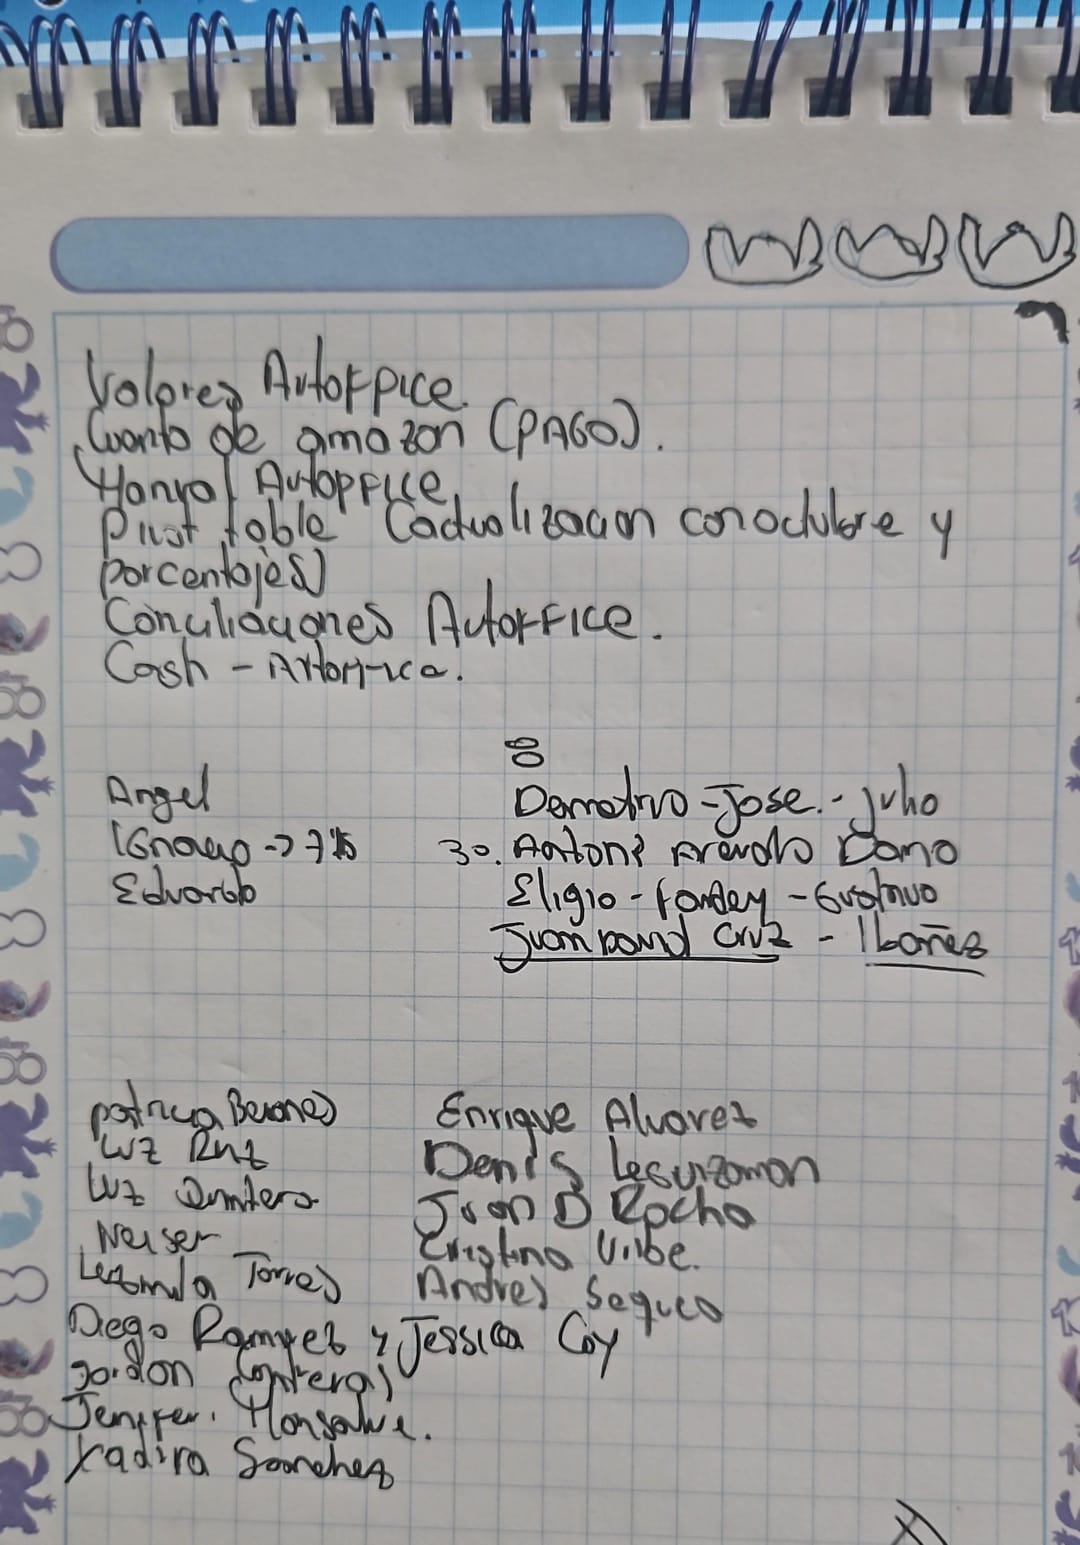 Valores Autoffice.
Cuanto de amazon (PAGO).
Manual Autoffice
Pivot table (actualizacion con octubre y
porcentajes)
Conciliaciones Autoffice.
Cash - Autoffice.
Angel
Ignacio -> 7%
Eduardo
Demetrio - Jose. - Julio
30. Antoni Arevalo Damo
Eligio - - Gustavo
Juan David Cruz - Ibañes
Patricia Berones
Luz Ruiz
Luz Quintero
Neiser
Torres
Diego Ramirez y Jessica Coy
Jordan Contreras
Jenifer. Monsalve.
Yadira Sanchez
Enrique Alvarez
Denis Leguizamon
Juan D Rocha
Cristina Uribe.
Andres Segura